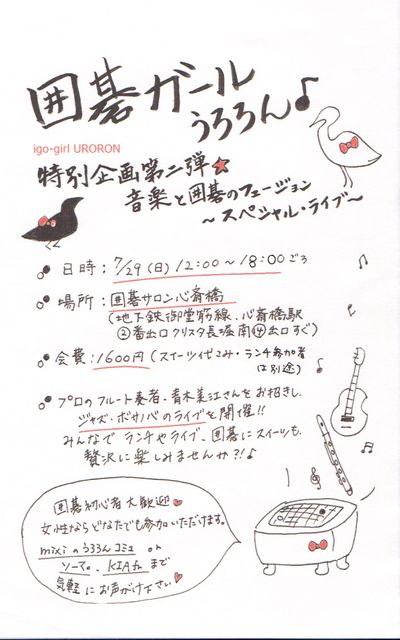 囲碁ガール
うろろん♪
igo-girl URORON
特別企画第二弾★
音楽と囲碁のフュージョン
～スペシャル・ライブ～
日時：7/29(日)12:00～18:00ごろ
場所：囲碁サロン心斎橋
(地下鉄御堂筋線、心斎橋駅
②番出口クリスタ長堀南⑭出口すぐ)
会費：1600円(スイーツ代込み・ランチ参加者
は別途)
プロのフルート奏者、青木美江さんをお招きし、
ジャズ・ボサノバのライブを開催!!
みんなで ランチやライブ、囲碁にスイーツも、
贅沢に楽しみませんか?!♪
囲碁初心者大歓迎♥
女性ならどなたでも参加いただけます。
mixiのうろろんコミュ or
まで
気軽にお声がけ下さい♥